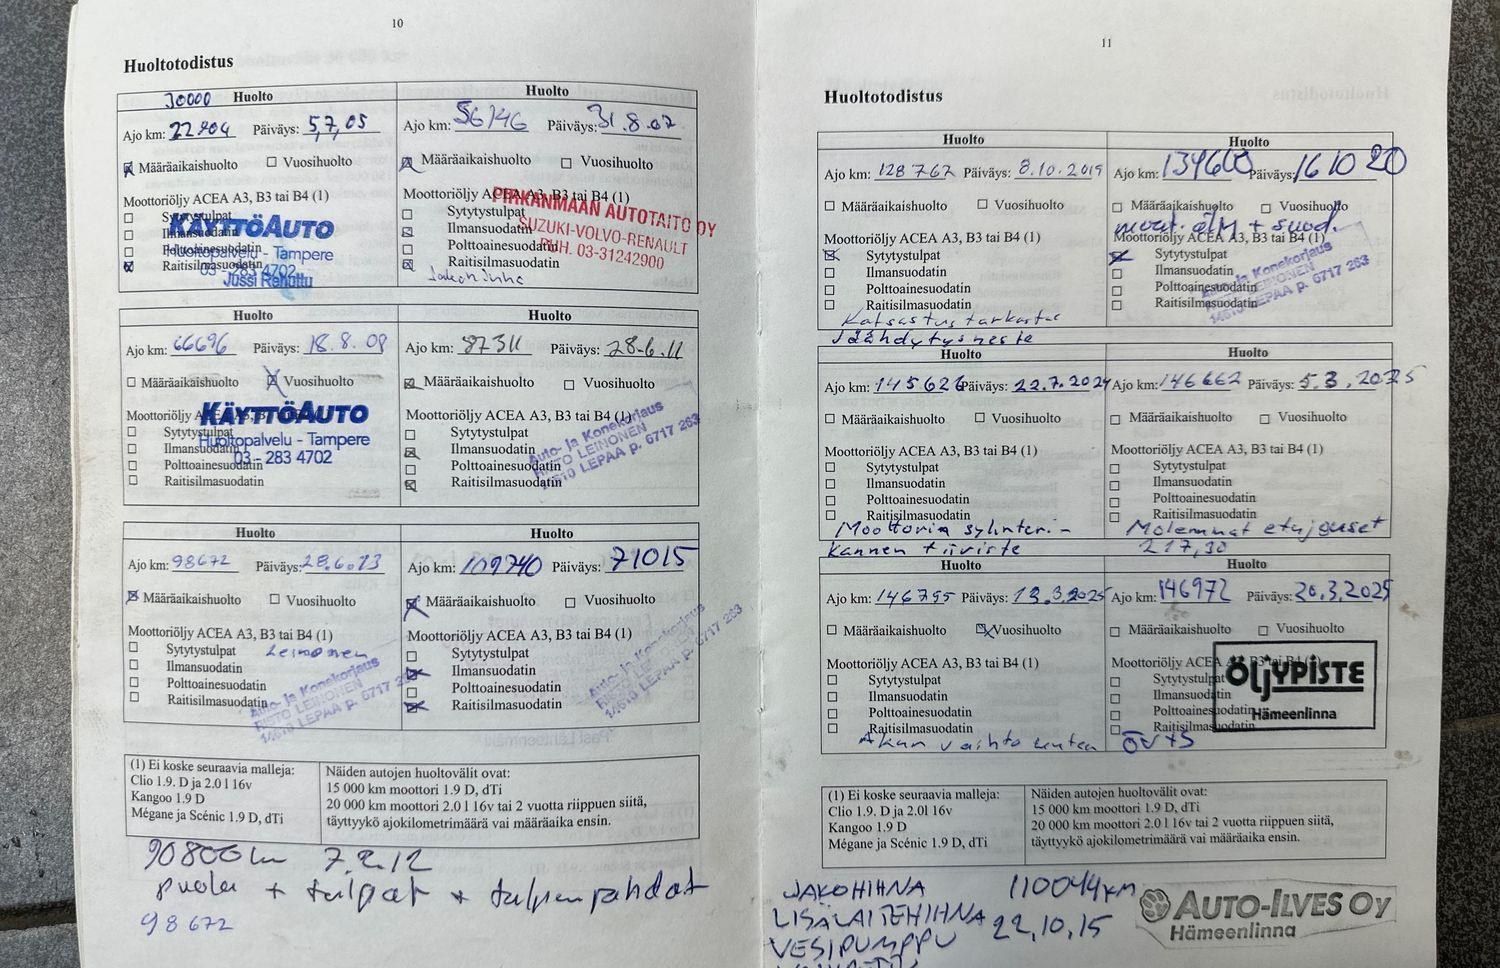 10
Huoltotodistus
30000 Huolto
Ajo km: 22804 Päiväys: 5,7,05
Määräaikaishuolto Vuosihuolto
Moottoriöljy ACEA A3, B3 tai B4 (1)
Sytytystulpat
Ilmansuodatin
Polttoainesuodatin
Raitisilmasuodatin
KÄYTTÖAUTO
Huoltopalvelu - Tampere
03 - 283 4702
Jussi
Huolto
Ajo km: 56146 Päiväys: 31.8.07
Määräaikaishuolto Vuosihuolto
Moottoriöljy ACEA A3, B3 tai B4 (1)
Sytytystulpat
Ilmansuodatin
Polttoainesuodatin
Raitisilmasuodatin
PIRKANMAAN AUTOTAITO OY
SUZUKI-VOLVO-RENAULT
PUH. 03-31242900
Huolto
Ajo km: 66696 Päiväys: 18.8.08
Määräaikaishuolto Vuosihuolto
Moottoriöljy ACEA A3, B3 tai B4 (1)
Sytytystulpat
Ilmansuodatin
Polttoainesuodatin
Raitisilmasuodatin
KÄYTTÖAUTO
Huoltopalvelu - Tampere
03 - 283 4702
Huolto
Ajo km: 87311 Päiväys: 28.6.11
Määräaikaishuolto Vuosihuolto
Moottoriöljy ACEA A3, B3 tai B4 (1)
Sytytystulpat
Ilmansuodatin
Polttoainesuodatin
Raitisilmasuodatin
Auto- ja Konekorjaus
RISTO LEINONEN
14610 LEPAA p. 6717 263
Huolto
Ajo km: 98672 Päiväys: 28.6.13
Määräaikaishuolto Vuosihuolto
Moottoriöljy ACEA A3, B3 tai B4 (1)
Sytytystulpat Leinonen
Ilmansuodatin
Polttoainesuodatin
Raitisilmasuodatin
Auto- ja Konekorjaus
RISTO LEINONEN
14610 LEPAA p. 6717 263
Huolto
Ajo km: 109740 Päiväys: 71015
Määräaikaishuolto Vuosihuolto
Moottoriöljy ACEA A3, B3 tai B4 (1)
Sytytystulpat
Ilmansuodatin
Polttoainesuodatin
Raitisilmasuodatin
Auto- ja Konekorjaus
RISTO LEINONEN
14610 LEPAA p. 6717 263
(1) Ei koske seuraavia malleja:
Clio 1.9. D ja 2.0 l 16v
Kangoo 1.9 D
Mégane ja Scénic 1.9 D, dTi
Näiden autojen huoltovälit ovat:
15 000 km moottori 1.9 D, dTi
20 000 km moottori 2.0 l 16v tai 2 vuotta riippuen siitä,
täyttyykö ajokilometrimäärä vai määräaika ensin.
90800 km 7.2.12
puola + tulpat + tulpanjohdat
98672
11
Huoltotodistus
Huolto
Ajo km: 128762 Päiväys: 8.10.2019
Määräaikaishuolto Vuosihuolto
Moottoriöljy ACEA A3, B3 tai B4 (1)
Sytytystulpat
Ilmansuodatin
Polttoainesuodatin
Raitisilmasuodatin
Katsastustarkastus
Jäähdytysneste
Huolto
Ajo km: 134600 Päiväys: 16 10 20
Määräaikaishuolto Vuosihuolto
moot. öljy + suod.
Moottoriöljy ACEA A3, B3 tai B4 (1)
Sytytystulpat
Ilmansuodatin
Polttoainesuodatin
Raitisilmasuodatin
Auto- ja Konekorjaus
LEINONEN
14610 LEPAA p. 6717 263
Huolto
Ajo km: 145626 Päiväys: 22.7.2024
Määräaikaishuolto Vuosihuolto
Moottoriöljy ACEA A3, B3 tai B4 (1)
Sytytystulpat
Ilmansuodatin
Polttoainesuodatin
Raitisilmasuodatin
Moottorin sylinteri-
kannen tiiviste
Huolto
Ajo km: 146662 Päiväys: 5.3.2025
Määräaikaishuolto Vuosihuolto
Moottoriöljy ACEA A3, B3 tai B4 (1)
Sytytystulpat
Ilmansuodatin
Polttoainesuodatin
Raitisilmasuodatin
Molemmat etujouset
217,30
Huolto
Ajo km: 146795 Päiväys: 13.3.2025
Määräaikaishuolto Vuosihuolto
Moottoriöljy ACEA A3, B3 tai B4 (1)
Sytytystulpat
Ilmansuodatin
Polttoainesuodatin
Raitisilmasuodatin
Akun vaihto
Huolto
Ajo km: 146972 Päiväys: 20.3.2025
Määräaikaishuolto Vuosihuolto
Moottoriöljy ACEA A3, B3 tai B4 (1)
Sytytystulpat
Ilmansuodatin
Polttoainesuodatin
Raitisilmasuodatin
ÖLJYPISTE
Hämeenlinna
ÖV+S
(1) Ei koske seuraavia malleja:
Clio 1.9. D ja 2.0l 16v
Kangoo 1.9 D
Mégane ja Scénic 1.9 D, dTi
Näiden autojen huoltovälit ovat:
15 000 km moottori 1.9 D, dTi
20 000 km moottori 2.0 l 16v tai 2 vuotta riippuen siitä,
täyttyykö ajokilometrimäärä vai määräaika ensin.
JAKOHIHNA 110044 KM
LISÄLAITEHIHNA 22,10,15
VESIPUMPPU
AUTO-ILVES OY
Hämeenlinna